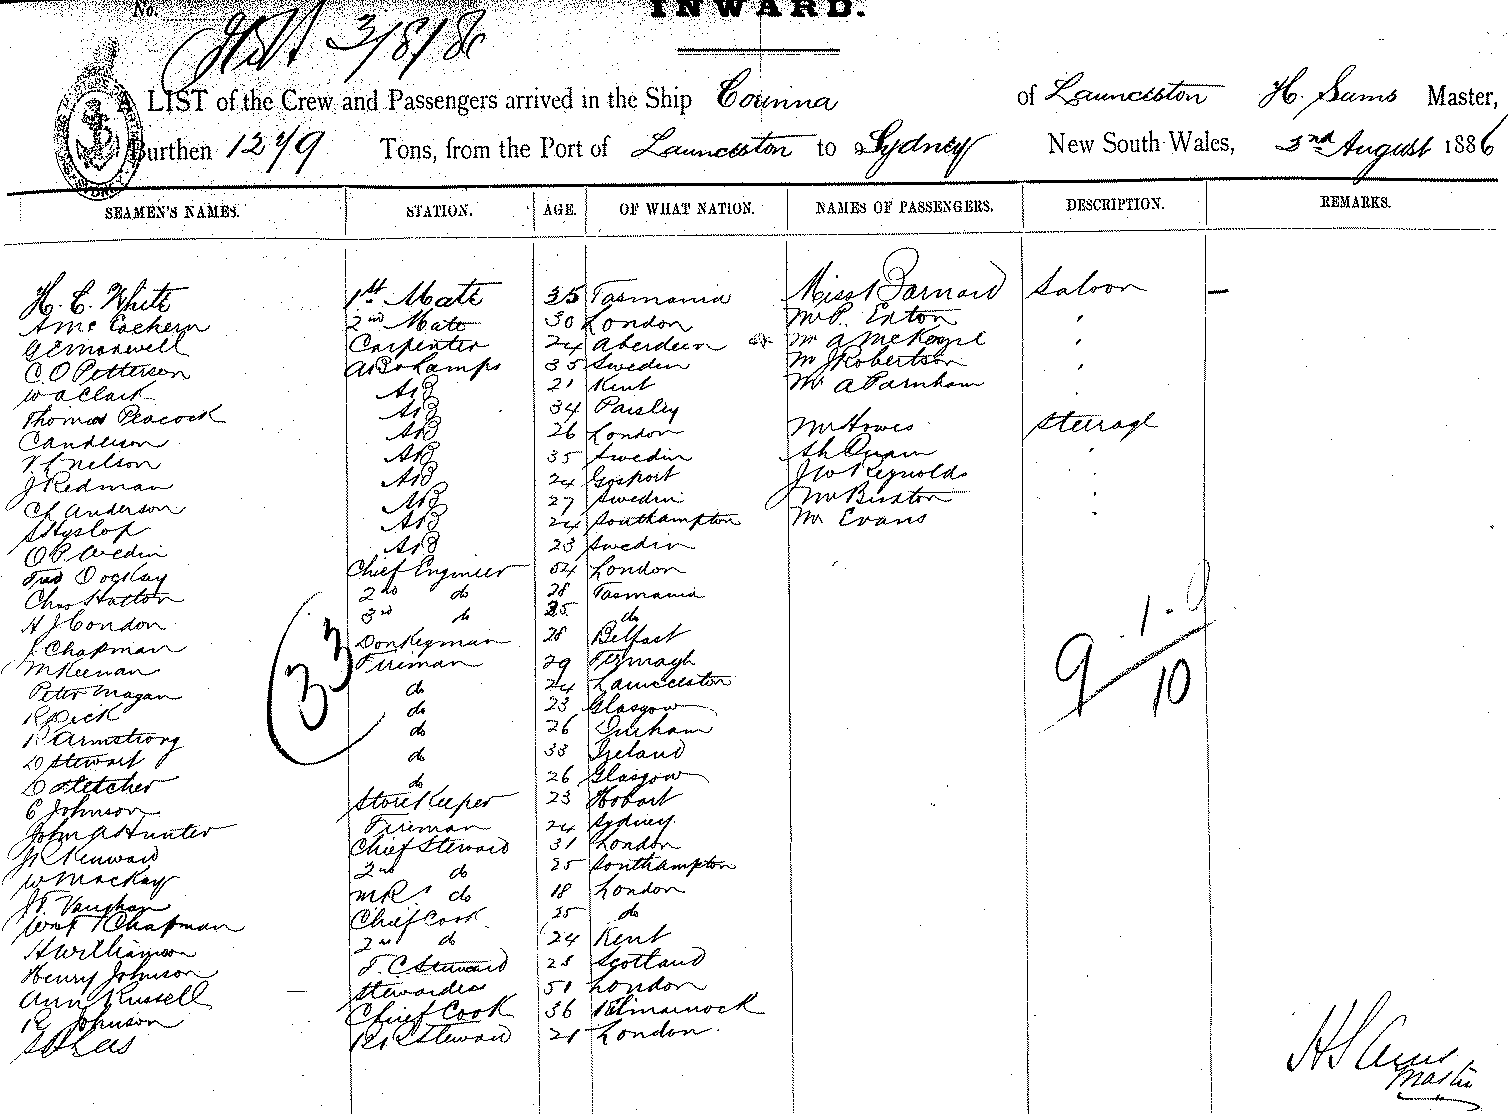 No.
INWARD.
3/8/86
A LIST of the Crew and Passengers arrived in the Ship Corinna of Launceston H. Sams Master,
Burthen 1279 Tons, from the Port of Launceston to Sydney New South Wales, 3rd August 1886
SEAMEN'S NAMES. STATION. AGE. OF WHAT NATION. NAMES OF PASSENGERS. DESCRIPTION. REMARKS.
H. C. White 1st Mate 35 Tasmania Miss Barnard Saloon —
A Mc Eachern 2nd Mate 30 London Mr P. Exton "
G E Maxwell Carpenter 24 Aberdeen Mr A McKenzie "
C O Petterson AB & Lamps 35 Sweden Mr J Robertson "
W A Clark AB 21 Kent Mr A Farnham "
Thomas Peacock AB 34 Paisley
C Anderson AB 26 London Mr Howes Steerage
Nelson AB 35 Sweden Ah Quan "
J Redman AB 24 Gosport J W Reynolds "
Ch Anderson AB 27 Sweden Mr Burton "
S Hyslop AB 24 Southampton Mr Evans "
O P Wedin AB 23 Sweden
Fred Dockay Chief Engineer 54 London
Chas Hatton 2nd do 28 Tasmania
H J Condon 3rd do 25 do
J Chapman Donkeyman 28 Belfast
M Keenan Fireman 29 Fermagh
Peter Magan do 24 Launceston
R Dick do 23 Glasgow
R Armstrong do 26 Durham
D Stewart do 33 Ireland
D Fletcher do 26 Glasgow
C Johnson Storekeeper 23 Hobart
John A Hunter Fireman 24 Sydney
J R Kenward Chief Steward 31 London
W Mackay 2nd do 25 Southampton
J T Vaughan M R do 18 London
Wm T Chapman Chief Cook 25 do
H Williamson 2nd do 24 Kent
Henry Johnson F. C Steward 28 Scotland
Ann Russell Stewardess 51 London
R Johnson Chief Cook 36 Kilmarnock
S H Lees P R Steward 21 London
33
9 1
10
H Sams
Master